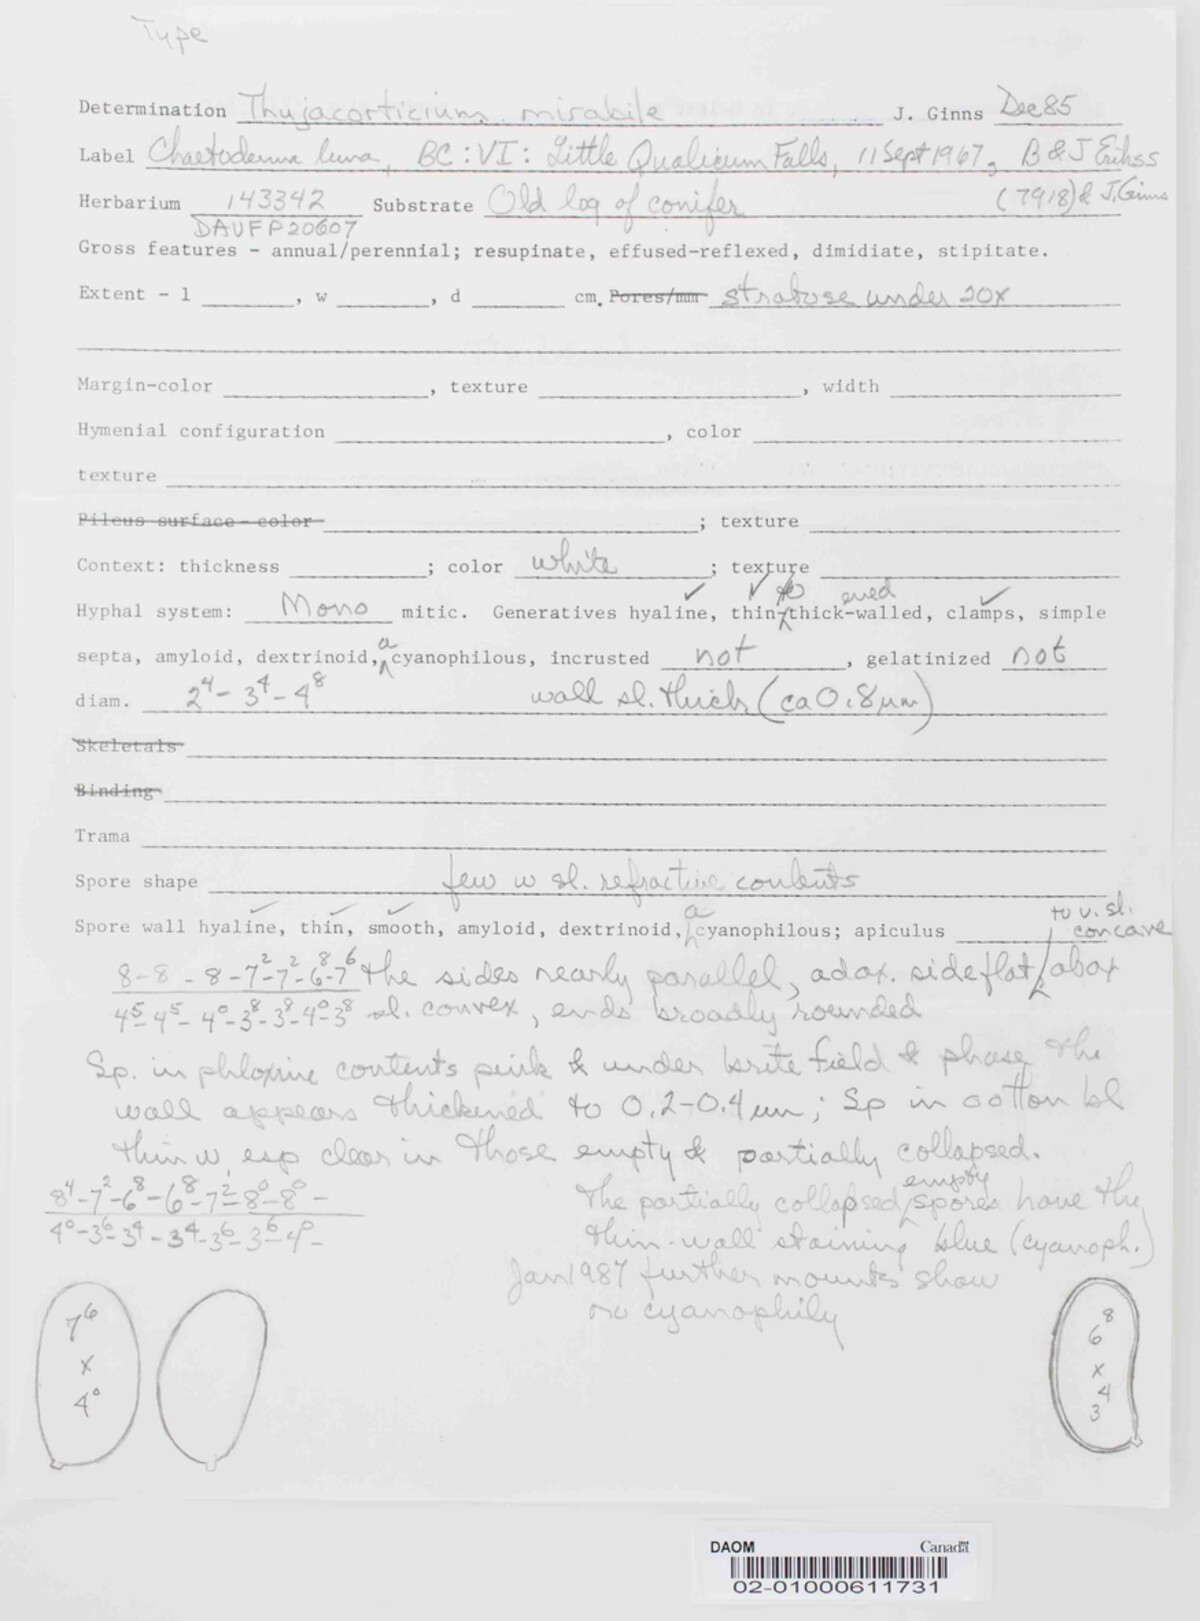 Type
Determination Thujacorticium mirabile J. Ginns Dec 85
Label Chaetoderma luna, BC: VI: Little Qualicum Falls, 11 Sept 1967, B & J Erikss
Herbarium 143342 Substrate Old log of conifer (7918) & J. Ginns
DAVFP20607
Gross features - annual/perennial; resupinate, effused-reflexed, dimidiate, stipitate.
Extent - l ______, w ______, d ______ cm. Pores/mm stratose under 20x
Margin-color ______, texture ______, width ______
Hymenial configuration ______, color ______
texture ______
Pileus surface - color ______; texture ______
Context: thickness ______; color white; texture ______
✓ ✓ to ened ✓
Hyphal system: Mono mitic. Generatives hyaline, thin/thick-walled, clamps, simple
septa, amyloid, dextrinoid, a cyanophilous, incrusted not, gelatinized not
diam. 2⁴ - 3⁴ - 4⁸ wall sl. thick (ca 0.8 µm)
Skeletals
Binding
Trama
Spore shape few w sl. refractive contents
Spore wall hyaline, thin, smooth, amyloid, dextrinoid, a cyanophilous; apiculus to v. sl. concave
8 - 8 - 8 - 7² - 7² - 6⁸ - 7⁶ the sides nearly parallel, adax. side flat, abax
4⁵ - 4⁵ - 4⁰ - 3⁸ - 3⁸ - 4⁰ - 3⁸ sl. convex, ends broadly rounded
Sp. in phloxine contents pink & under brite field & phase the
wall appears thickened to 0.2-0.4 um; Sp in cotton bl
thin w, esp clear in those empty & partially collapsed.
8⁴ - 7² - 6⁸ - 6⁸ - 7² - 8⁰ - 8⁰ - The partially collapsed, empty spores have the
4⁰ - 3⁶ - 3⁴ - 3⁴ - 3⁶ - 3⁶ - 4⁰ - thin-wall staining blue (cyanoph.)
Jan 1987 further mounts show
no cyanophily
7⁶
x
4⁰
6⁸
x
3⁴
DAOM Canada
02-01000611731